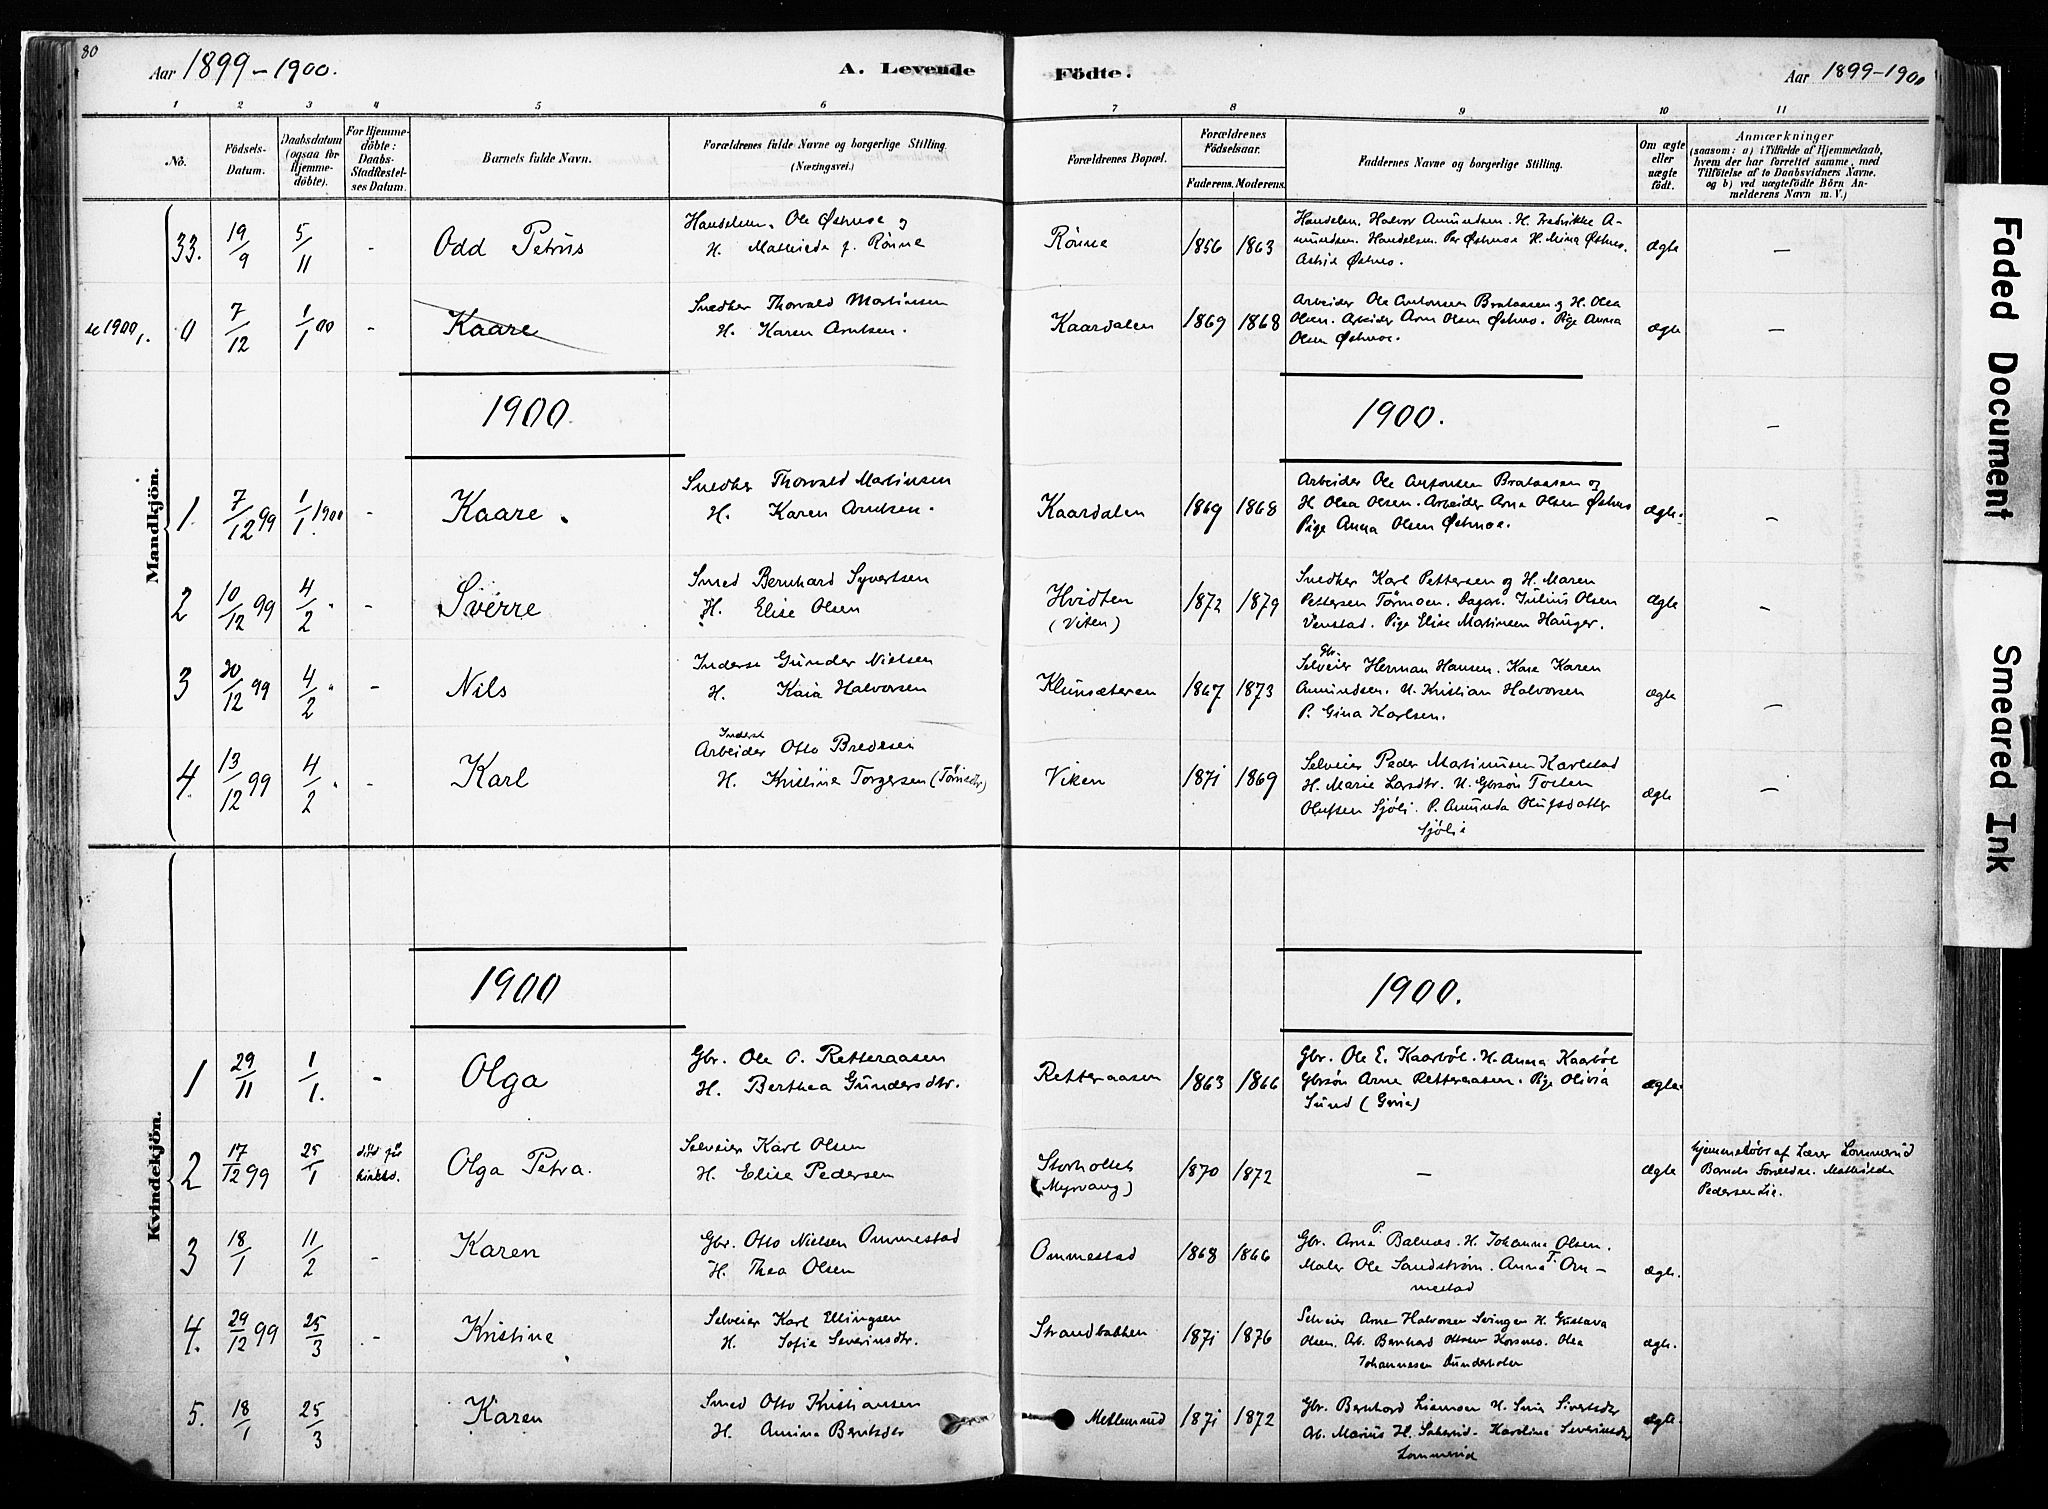 80
Aar 1899-1900.
A. Levende
Födte.
Aar 1899-1900
1 2 3 4 5 6 7 8 9 10 11
No.
Födsels-Datum.
Daabsdatum (ogsaa for Hjemme-döbte).
For Hjemme-döbte: Daabs-Stadfæstel-ses Datum.
Barnets fulde Navn.
Forældrenes fulde Navne og borgerlige Stilling.
(Næringsvei.)
Forældrenes Bopæl.
Forældrenes Födselsaar.
Faderens. Moderens.
Faddernes Navne og borgerlige Stilling.
Om ægte eller uægte födt.
Anmærkninger
(saasom: a) i Tilfælde af Hjemmedaab,
hvem der har forrettet samme, med
Tilföielse af to Daabsvidners Navne,
og b) ved uægtefödte Börn An-
melderens Navn m. V.)
Mandkjön.
33. 19/9 5/11 - Odd Petrus
Handelsm. Ole Østmoe og
H. Mathilde f. Rønne
Rønne 1856 1863
Handelsm. Halvor Amundsen. H. Fredrikke A-
mundsen. Handelsm. Per Østmoe H. Mina Østmo.
Astrid Østmo.
ægte -
se 1900, 1. 0 7/12 1/1 00 - Kaare
Snedker Thorvald Martinsen
H. Karen Arntsen.
Kaardalen 1869 1868
Arbeider Ole Antonsen Brataasen og H. Olea
Olsen. Arbeider Arne Olsen Østmo. Pige Anna
Olsen Østmoe.
ægte -
1900.
1900.
-
1. 7/12 99 1/1 1900 - Kaare.
Snedker Thorvald Martinsen
H. Karen Arntsen.
Kaardalen 1869 1868
Arbeider Ole Antonsen Brataasen og
H. Olea Olsen. Arbeider Arne Olsen Østmo
Pige Anna Olsen Østmoe.
ægte. -
2 10/12 99 4/2 " - Sverre
Smed Bernhard Syvertsen
H. Elise Olsen
Hvidten
(Viten)
1872 1879
Snedker Karl Pettersen og H. Maren
Pettersen Tørmoen. Dagar. Julius Olsen
Venstad. Pige Elise Martinsen Hauger.
ægte -
3 20/12 99 4/2 " - Nils
Inderse Gunder Nielsen
H. Kaia Halvorsen
Klunsæteren 1867 1873
Gbr.
Selveier Herman Hansen. Kone Karen
Amundsen. U. Kristian Halvorsen
P. Gina Karlsen.
ægte -
4. 13/12 99 4/2 " - Karl
Inderst
Arbeider Otto Bredesen
H. Kristine Torgersen
Viken 1871 1869
Selveier Peder Martinusen Karlstad
H. Marie Larsdtr. U. Gbrsøn Torsten
Olufsen Sjøli. P. Amunda Olufsdatter
Sjølie
ægte -
Kvindekjön.
1900
1900.
1 29/11 1/1. - Olga
Gbr. Ole O. Retteraasen
H. Berthea Gundersdtr.
Retteraasen 1863 1866
Gbr. Ole E. Kaarbøl. H. Anna Kaarbøl
Gbrsøn Arne Retteraasen. Pige Olivia
Sund
ægte.
2 17/12 99 25/1
Olga Petra.
Selveier Karl Olsen
H. Elise Pedersen
Storholtet
(Myrvang)
1870 1872
-
ægte
hjemmedøbt af Lærer Lommerud
Barnets Forældre. Mathilde
Pedersen Lie.
3 18/1 11/2 - Karen
Gbr. Otto Nielsen Ommestad
H. Thea Olsen
Ommestad 1868 1866
Gbr. Arne P. Balnæs. H. Johanne Olsen.
Maler Ole Sandstrøm. Anne T. Om-
mestad
ægte.
4. 29/12 99 25/3 - Kristine
Selveier Karl Ellingsen
H. Sofie Severinsdtr.
Strandbakken 1871 1876
Selveier Arne Halvorsen Svingen H. Gustava
Olsen. Arb. Bernhard Olsen Korsmo. Olea
Johannesen Dunderholen
ægte.
5. 18/1 25/3 Karen
Smed Otto Kristiansen
H. Amina Berntsdtr
Mellemrud 1871 1872
Gbr. Bernhard Liermoen H. Siversdtr
Arb. Marius H. Karoline Severinsdtr
Lommerud
ægte.
Faded Document
Smeared Ink